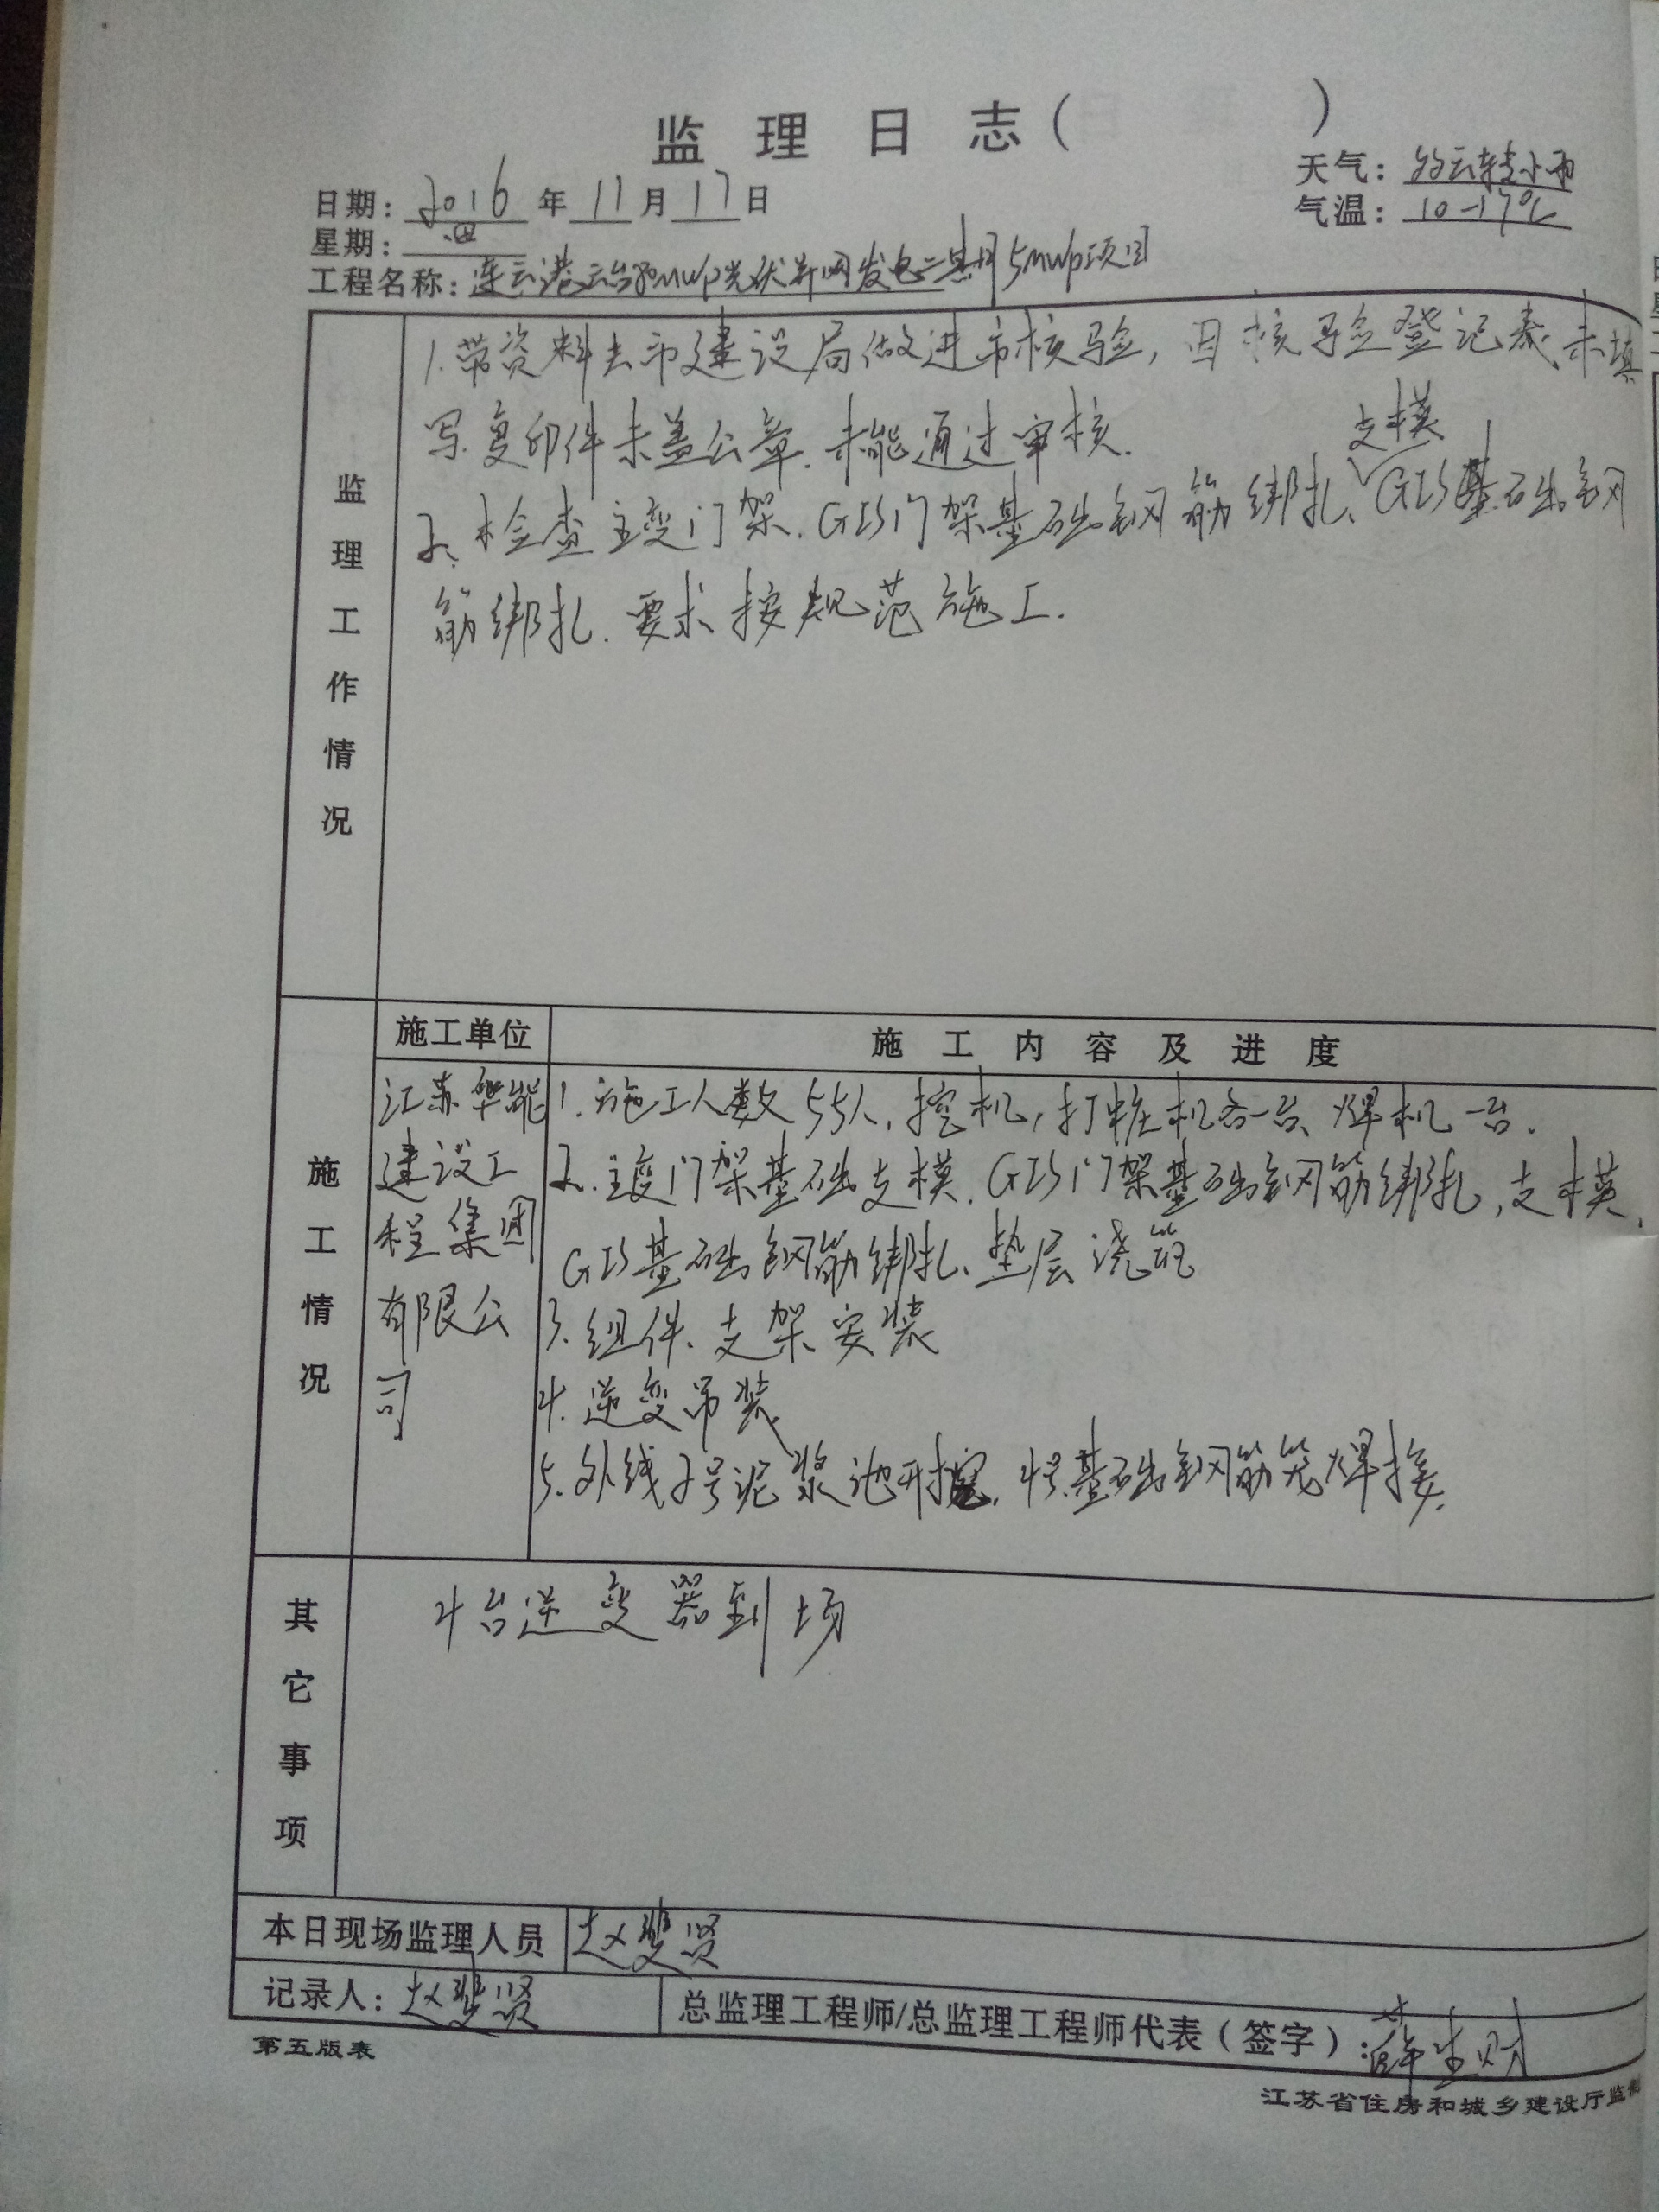 监 理 日 志 ( )
日期: 2016 年 11 月 17 日
天气: 多云转小雨
星期: 四
气温: 10-17℃
工程名称: 连云港云台 MWp光伏并网发电二期 5MWp项目
监理工作情况
1. 带资料去市建设局做进市核验, 因核验登记表、未填
写. 复印件未盖公章. 未能通过审核.
支模
2. 检查主变门架. GIS门架基础钢筋绑扎、GIS基础钢
筋绑扎. 要求按规范施工.
施工情况
施工单位
施 工 内 容 及 进 度
江苏华能
建设工
程集团
有限公
司
1. 施工人数55人, 挖机, 打桩机各一台、焊机一台.
2. 主变门架基础支模. GIS门架基础钢筋绑扎, 支模、
GIS基础钢筋绑扎、垫层浇筑
3. 组件、支架安装
4. 逆变吊装
5. 外线2号泥浆池开挖. 4号基础钢筋笼焊接.
其它事项
4台逆变器到场
本日现场监理人员 赵 贤
记录人: 赵 贤
总监理工程师/总监理工程师代表(签字): 薛生财
第五版表
江苏省住房和城乡建设厅监